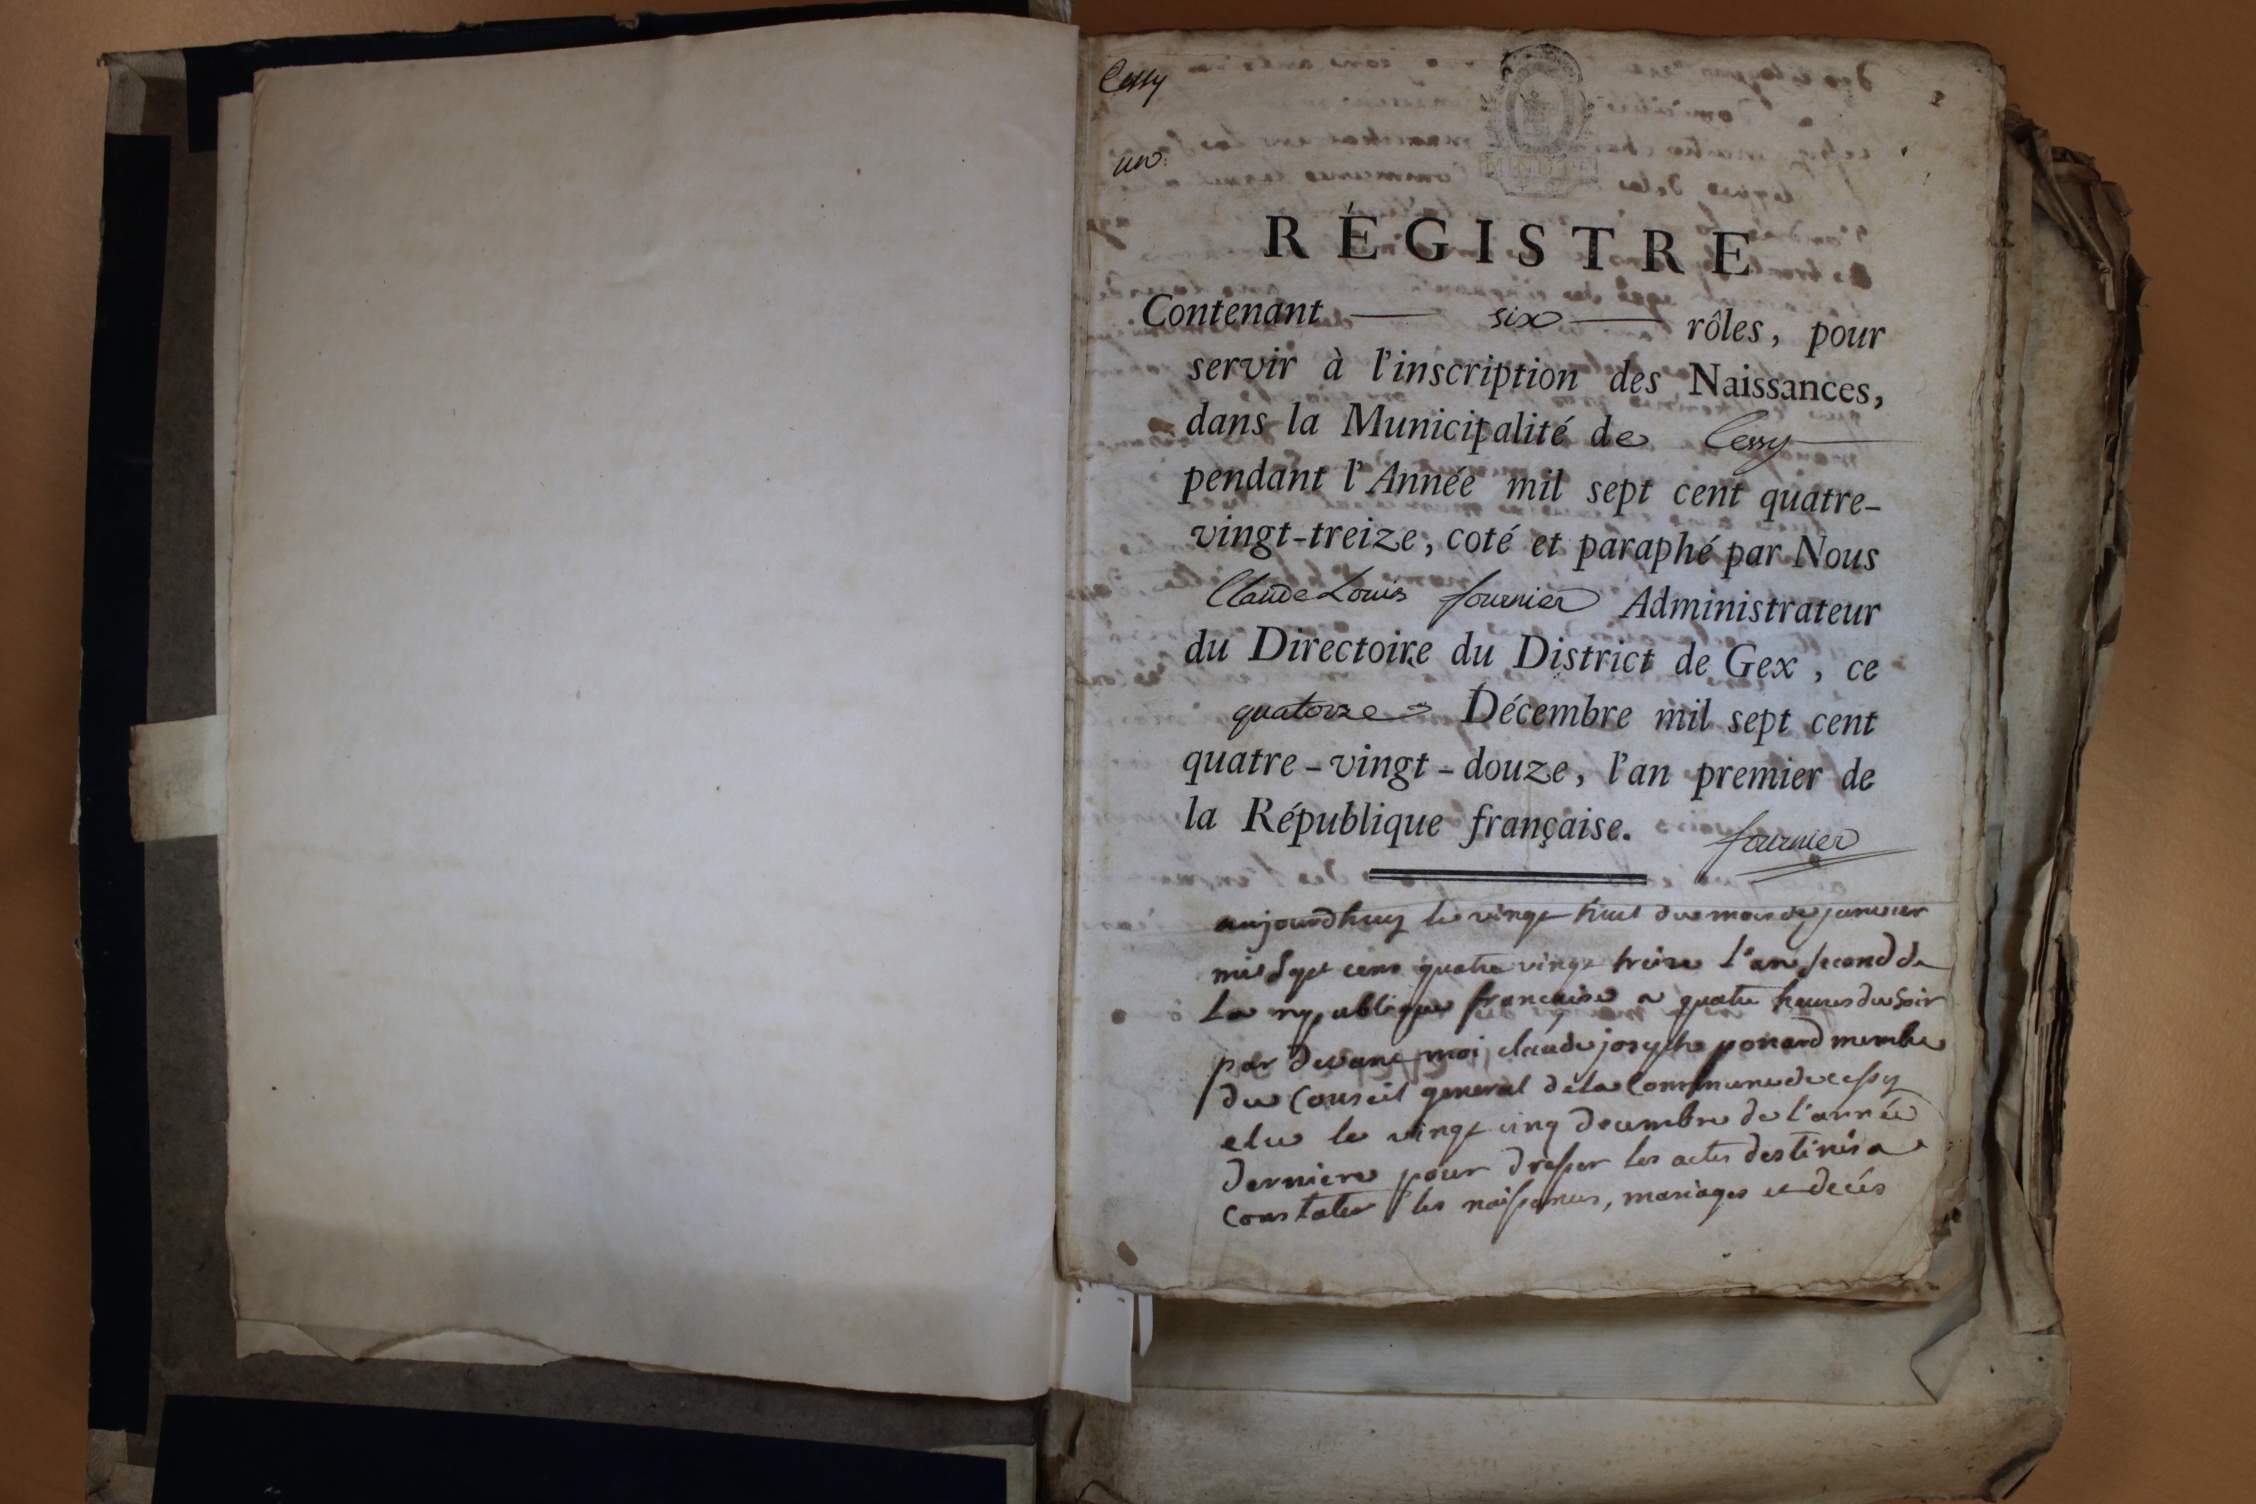 Cessy
1
un.
RÉGISTRE
Contenant — six — rôles, pour
servir à l'inscription des Naissances,
dans la Municipalité de Cessy
pendant l'Année mil sept cent quatre-
vingt-treize, coté et paraphé par Nous
Claude Louis fournier Administrateur
du Directoire du District de Gex, ce
quatorze Décembre mil sept cent
quatre-vingt-douze, l'an premier de
la République française.
fournier
aujourdhuy le vingt huit du mois de janvier
mil sept cens quatre vingt treize l'an second de
La republique francaise a quatre heures du soir
par devant moi claude joseph ponard membre
du Conseil general de la Commune de cessy
elu le vingt cinq decembre de l'année
derniere pour dresser les actes destinés a
Constater les naissances, mariages et decés